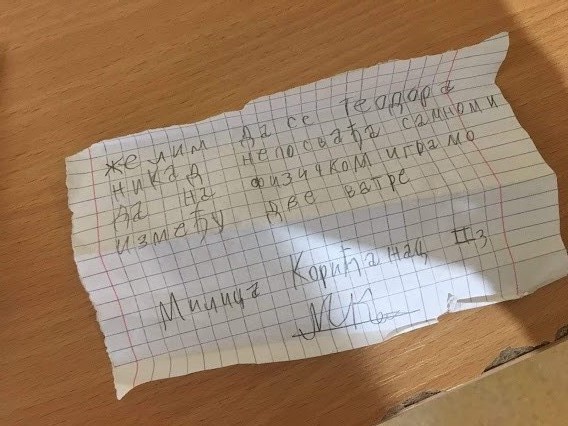 желим да се Теодора
никад непосвађа самном и
да на физичком играмо
између две ватре
Милица Корићанац II3